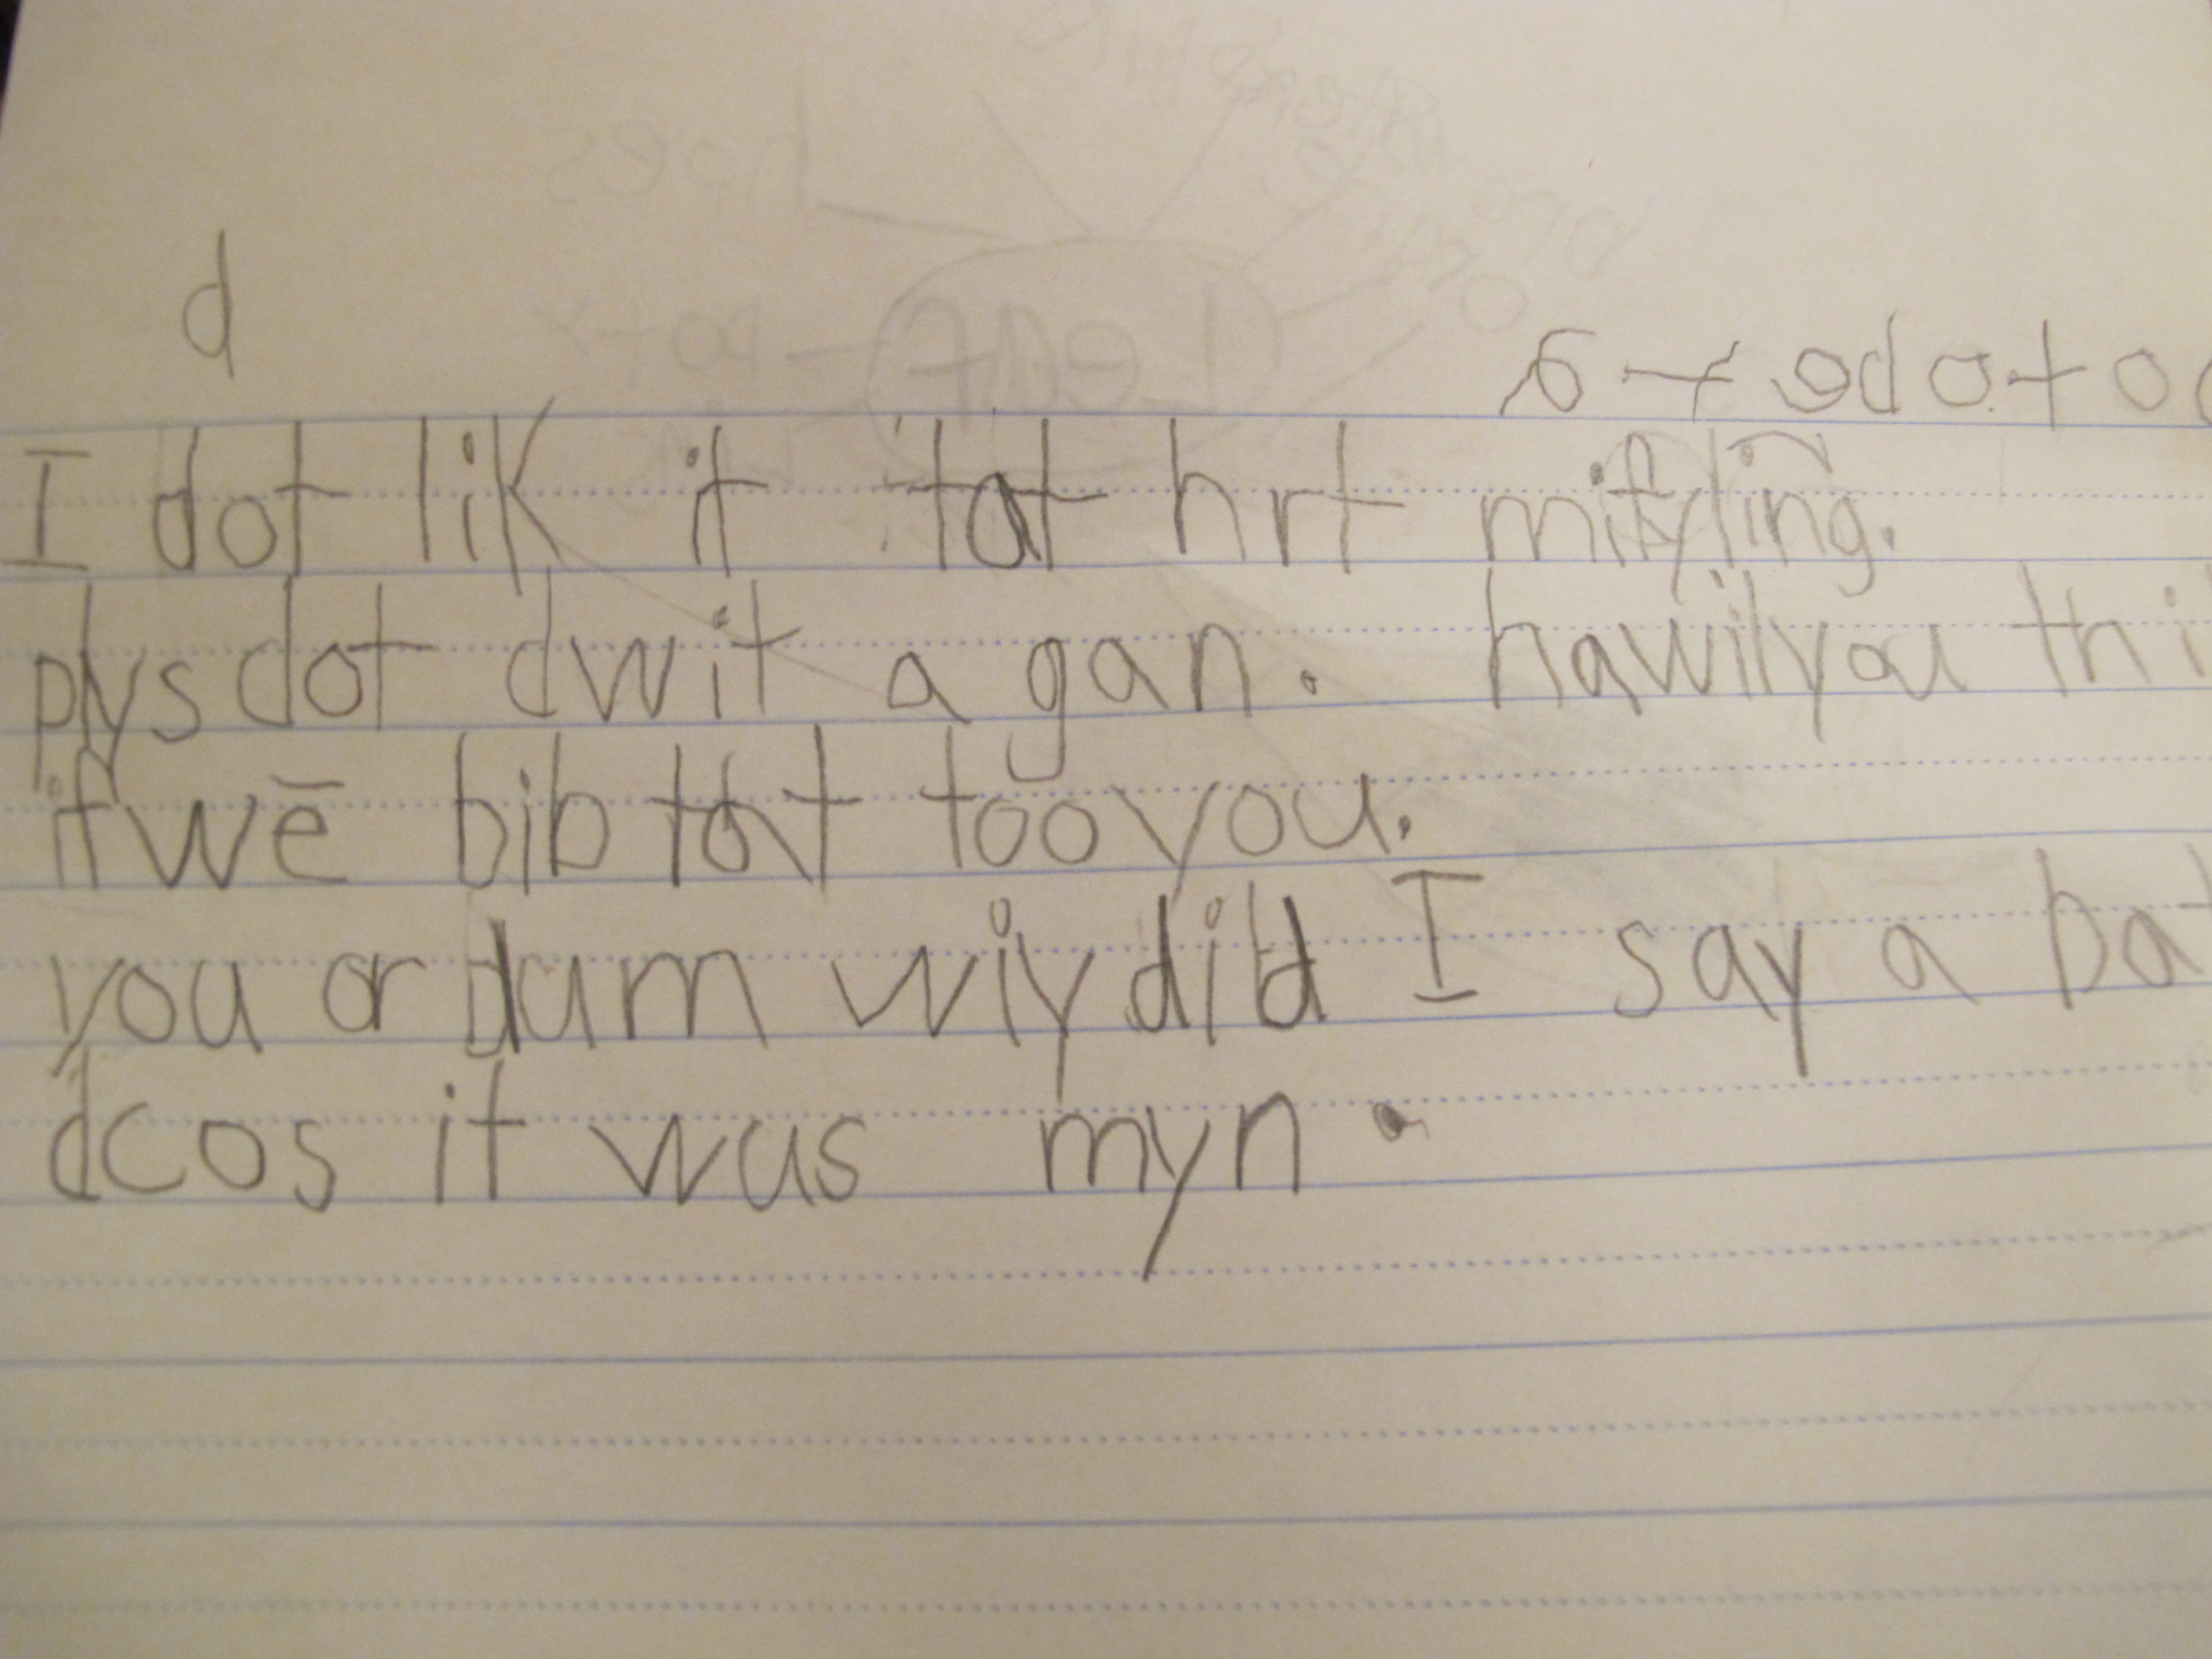 d
I dot lik it tat hrt mifyling.
plys dot dwit a gan. hawilyou thi
if wē bib tot too you.
you or dum wiy did I say a bat
dcos it wus myn.